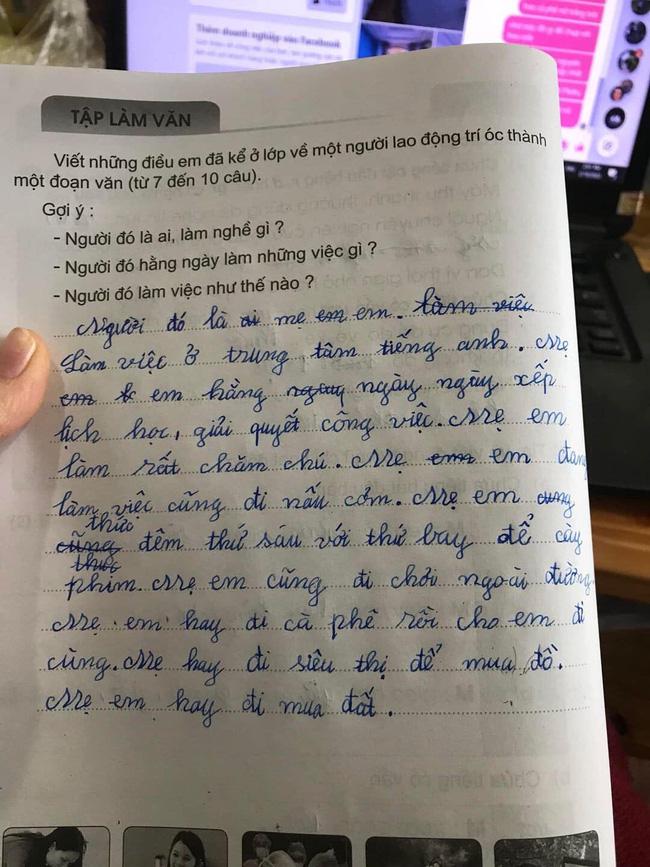 Thêm doanh nghiệp vào Facebook
TẬP LÀM VĂN
Viết những điều em đã kể ở lớp về một người lao động trí óc thành
một đoạn văn (từ 7 đến 10 câu).
Gợi ý :
- Người đó là ai, làm nghề gì ?
- Người đó hằng ngày làm những việc gì ?
- Người đó làm việc như thế nào ?
Người đó là ai mẹ em em. làm việc
Làm việc ở trung tâm tiếng anh. Mẹ
em em hằng ngày ngày ngày xếp
lịch học, giải quyết công việc. Mẹ em
làm rất chăm chú. Mẹ em em đang
làm việc cũng đi nấu cơm. Mẹ em cung
thức
cũng đêm thứ sáu với thứ bay để cày
thức
phim. Mẹ em cũng đi chơi ngoài đường.
Mẹ em hay đi cà phê rồi cho em đi
cùng. Mẹ hay đi siêu thị để mua đồ.
Mẹ em hay đi mua đất.
b) Chứa tiếng có vần